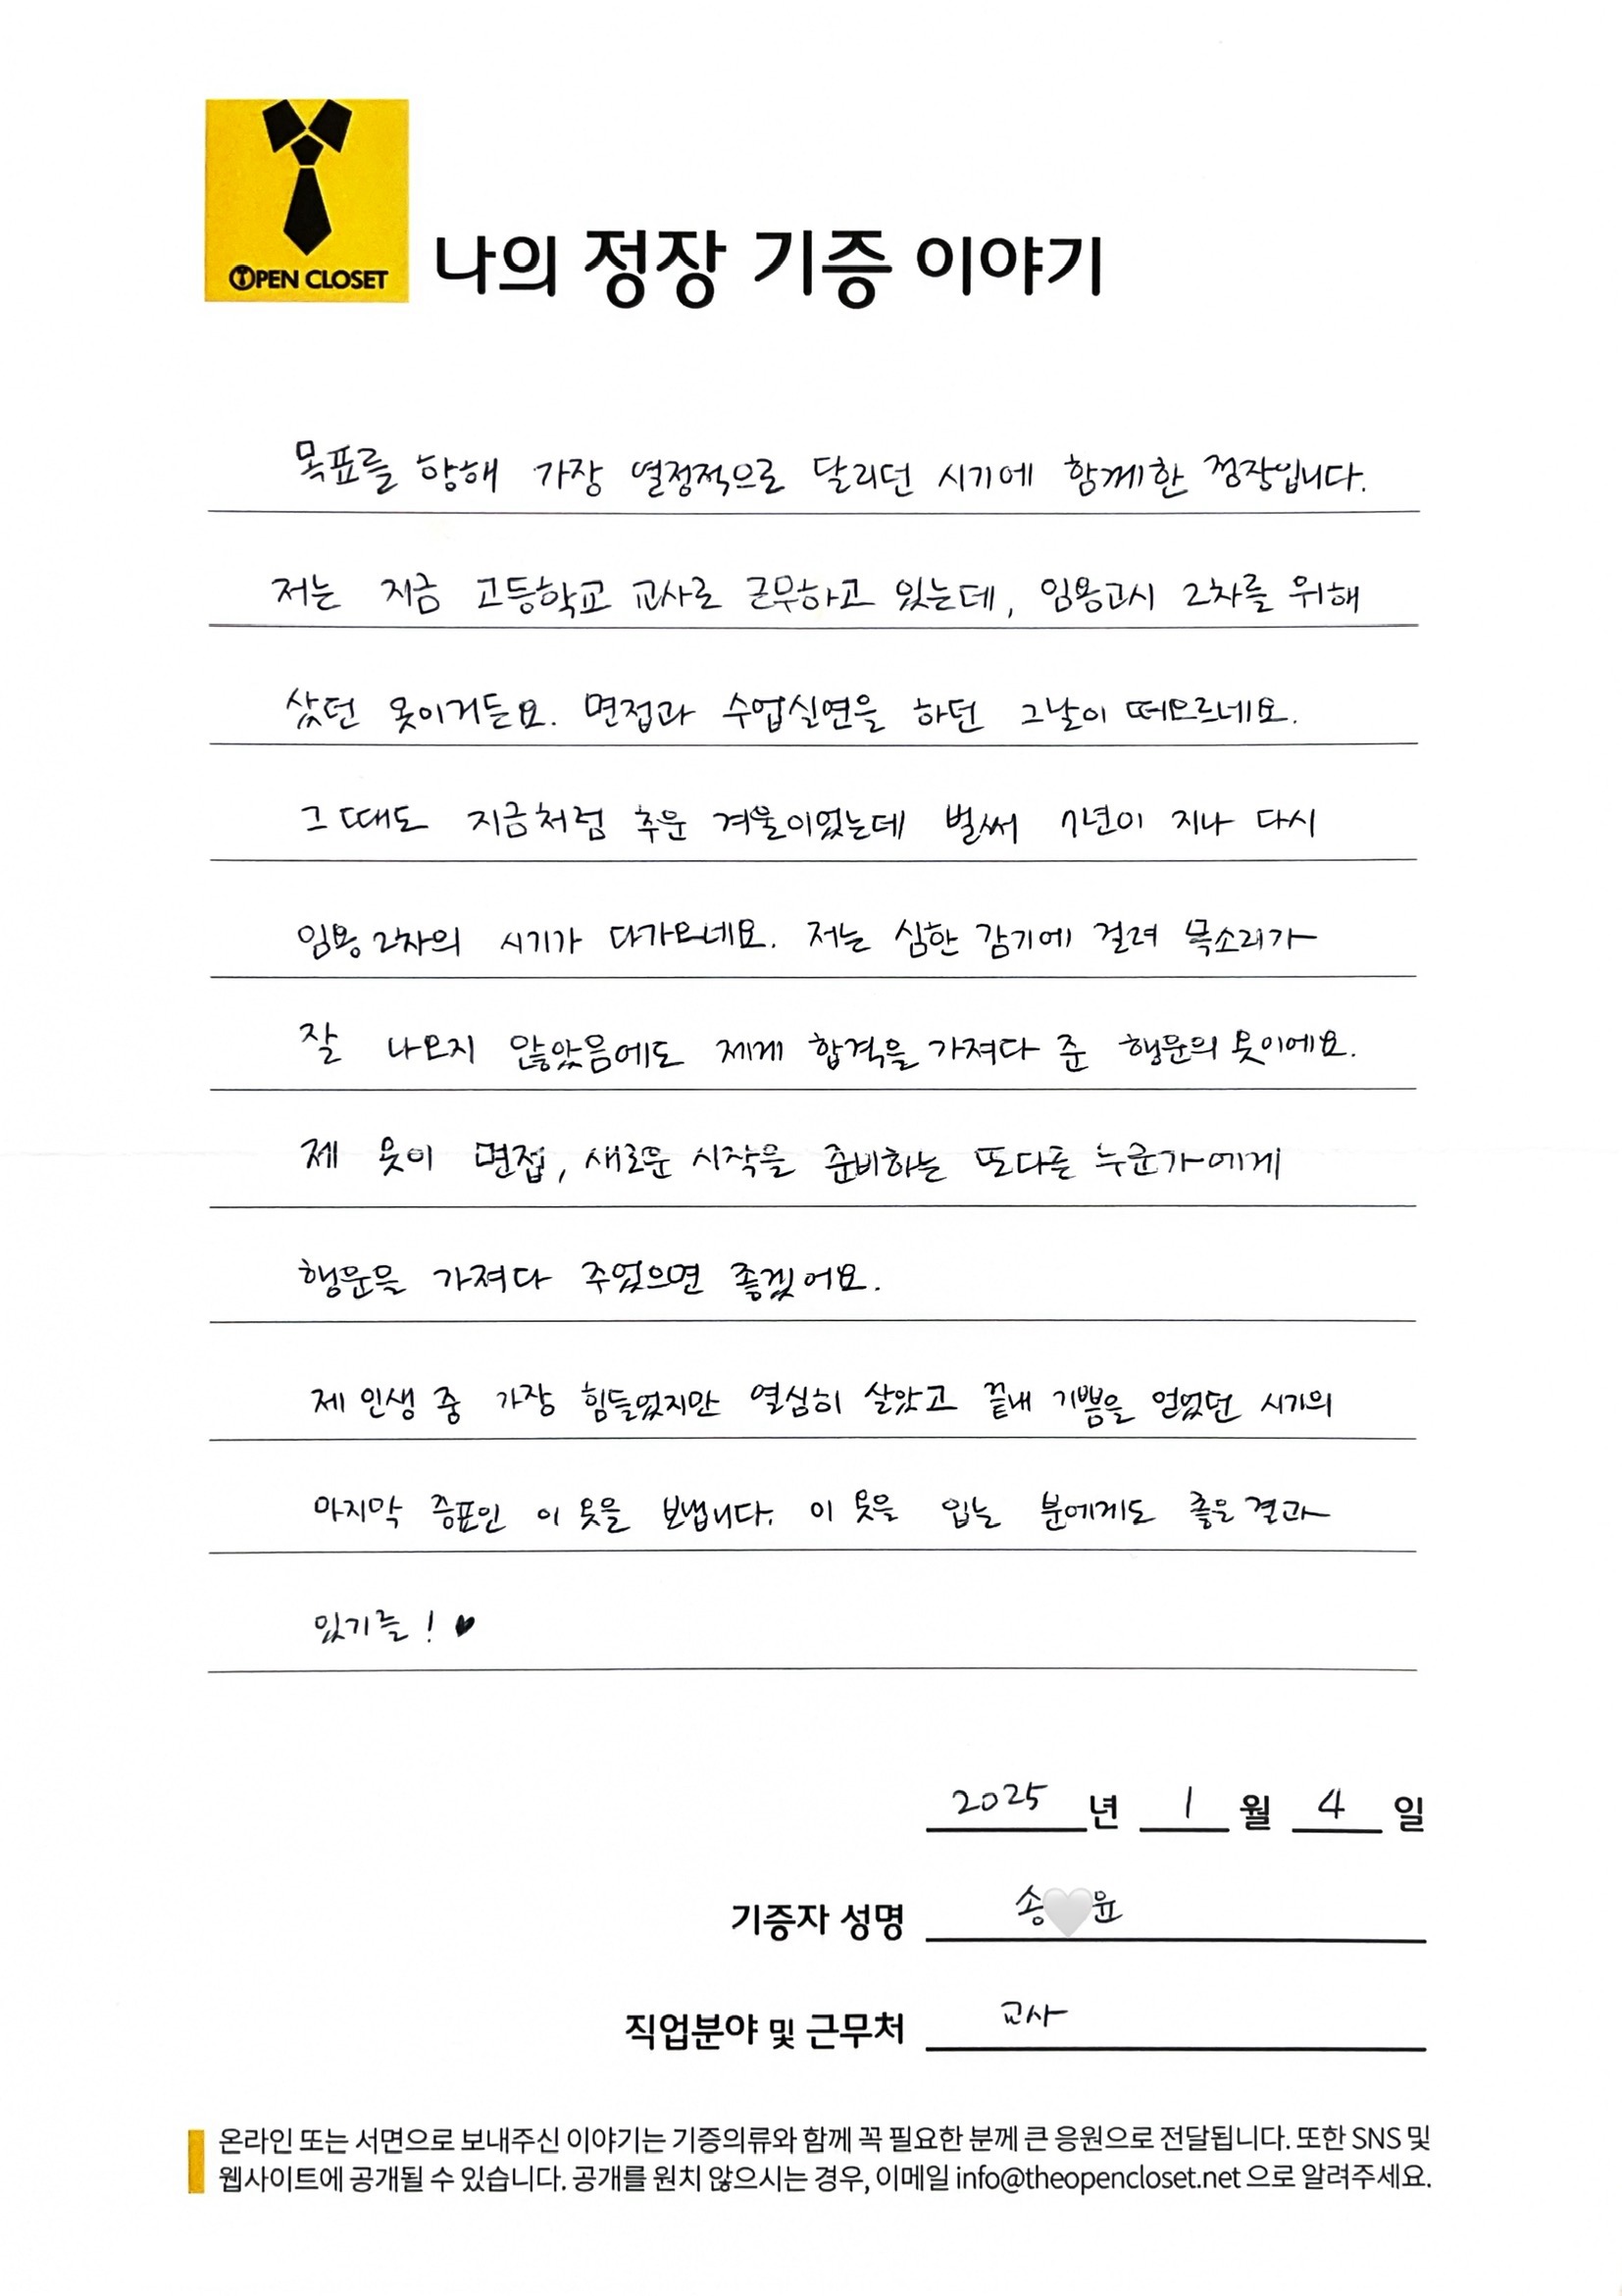 OPEN CLOSET
나의 정장 기증 이야기
목표를 향해 가장 열정적으로 달리던 시기에 함께한 정장입니다.
저는 지금 고등학교 교사로 근무하고 있는데, 임용고시 2차를 위해
샀던 옷이거든요. 면접과 수업실연을 하던 그날이 떠오르네요.
그때도 지금처럼 추운 겨울이었는데 벌써 7년이 지나 다시
임용 2차의 시기가 다가오네요. 저는 심한 감기에 걸려 목소리가
잘 나오지 않았음에도 제게 합격을 가져다 준 행운의 옷이에요.
제 옷이 면접, 새로운 시작을 준비하는 또다른 누군가에게
행운을 가져다 주었으면 좋겠어요.
제 인생 중 가장 힘들었지만 열심히 살았고 끝내 기쁨을 얻었던 시기의
마지막 증표인 이 옷을 보냅니다. 이 옷을 입는 분에게도 좋은 결과
있기를! ♥
2025 년 1 월 4 일
기증자 성명 송🤍윤
직업분야 및 근무처 교사
온라인 또는 서면으로 보내주신 이야기는 기증의류와 함께 꼭 필요한 분께 큰 응원으로 전달됩니다. 또한 SNS 및
웹사이트에 공개될 수 있습니다. 공개를 원치 않으시는 경우, 이메일 info@theopencloset.net 으로 알려주세요.